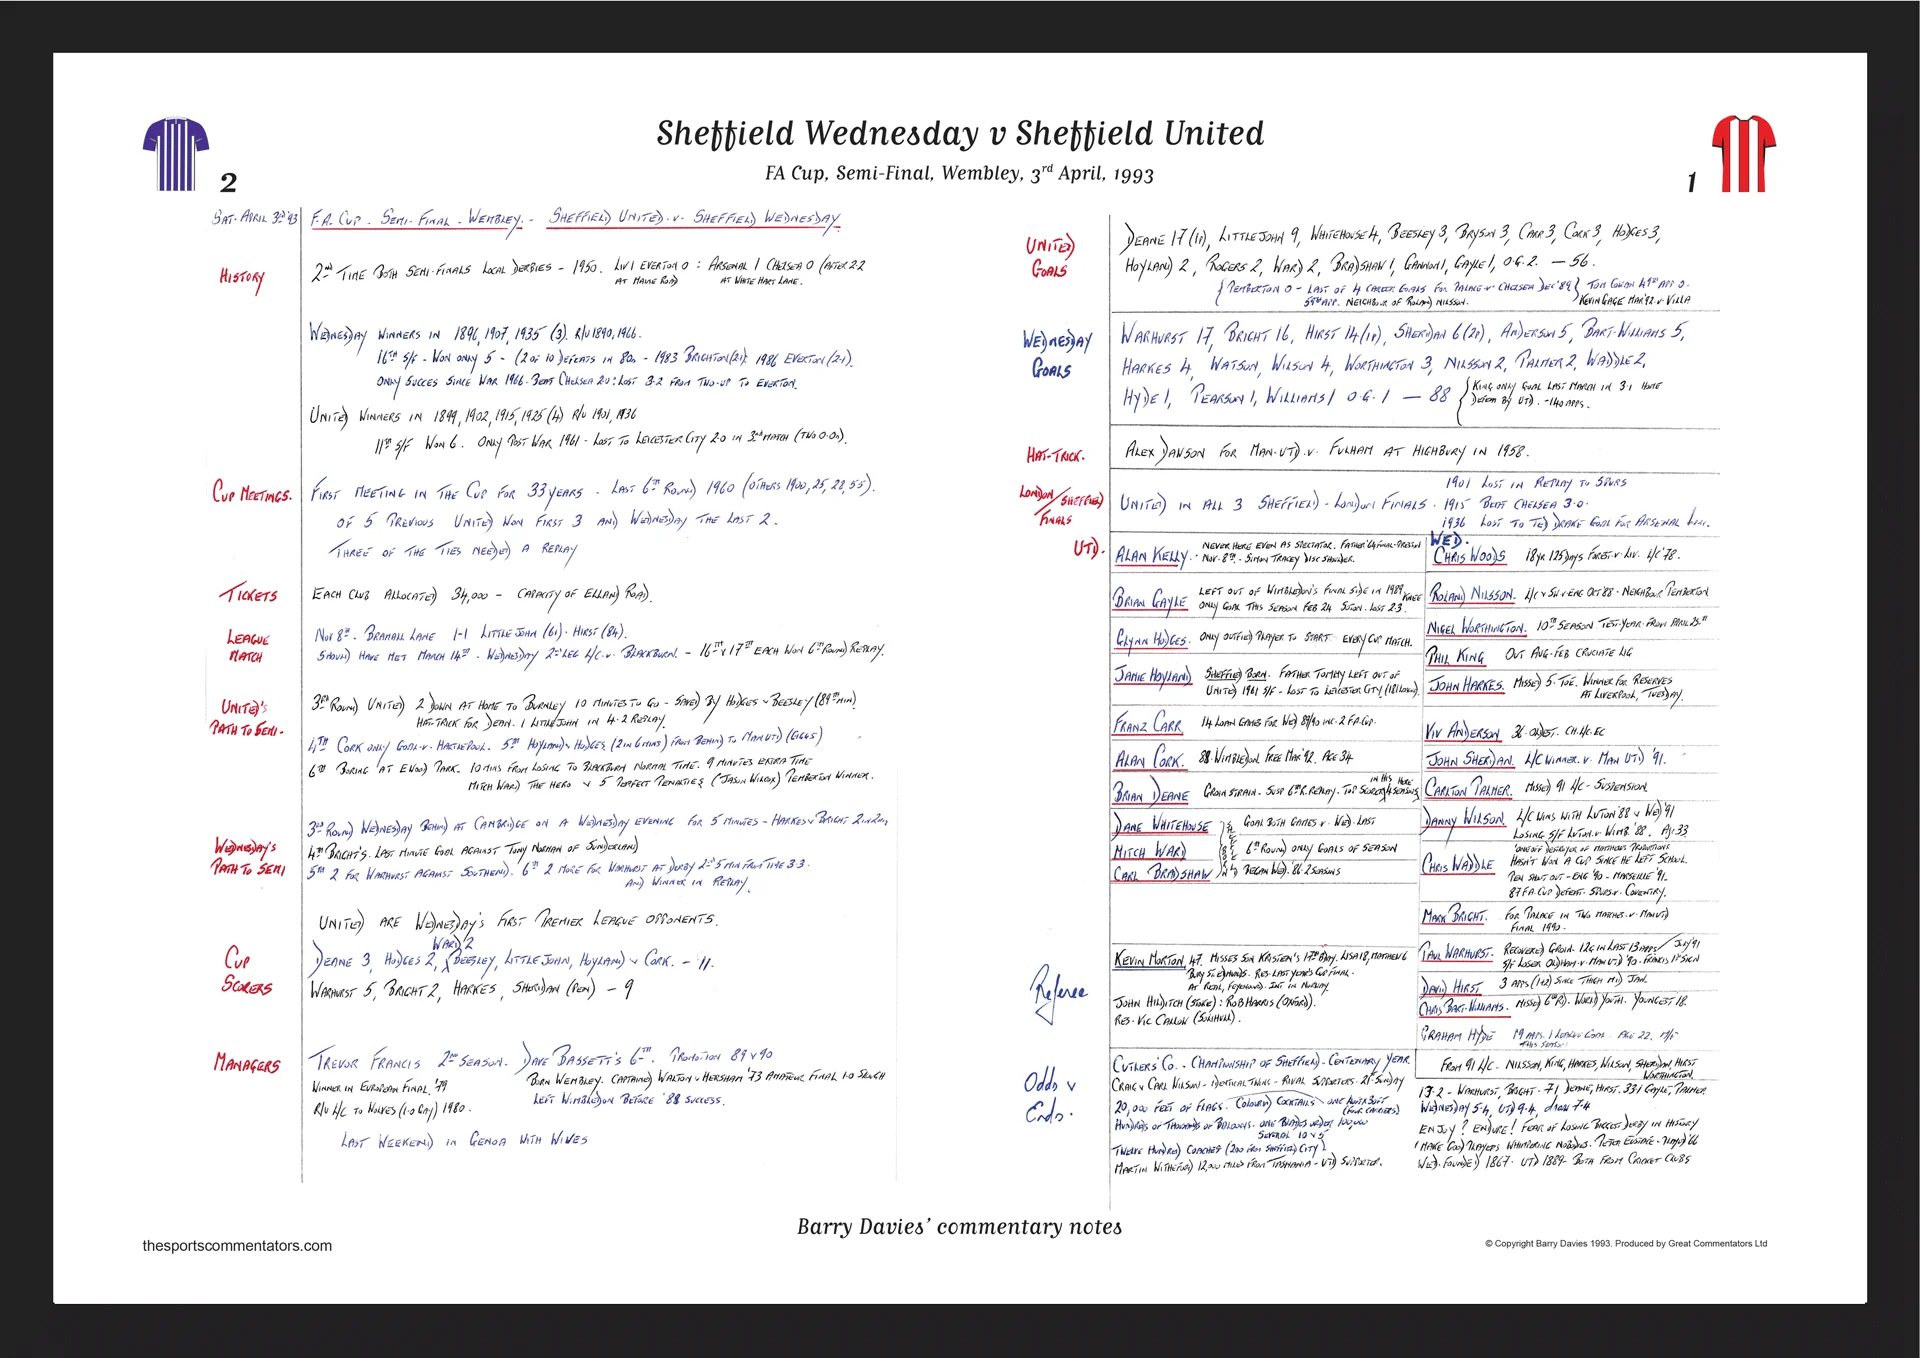 Sheffield Wednesday v Sheffield United
FA Cup, Semi-Final, Wembley, 3rd April, 1993
2
1
SAT. APRIL 3RD '93
F.A. CUP - SEMI-FINAL - WEMBLEY - SHEFFIELD UNITED v SHEFFIELD WEDNESDAY
HISTORY
2ND TIME BOTH SEMI-FINALS LOCAL DERBIES - 1950. LIV 1 EVERTON 0 : ARSENAL 1 CHELSEA 0 (AFTER 2.2
AT MAINE ROAD AT WHITE HART LANE.
WEDNESDAY WINNERS IN 1896, 1907, 1935 (3). R/U 1890, 1966.
16TH S/F - WON ONLY 5 - (2 OF 10) DEFEATS IN 80s - 1983 BRIGHTON (2.1) 1986 EVERTON (2.1).
ONLY SUCCES SINCE WAR 1966. BEAT CHELSEA 2.0: LOST 3.2 FROM TWO-UP TO EVERTON.
UNITED WINNERS IN 1899, 1902, 1915, 1925 (4) R/U 1901, 1936
11TH S/F WON 6. ONLY POST WAR 1961 - LOST TO LEICESTER CITY 2.0 IN 3RD MATCH (TWO 0.0s).
CUP MEETINGS.
FIRST MEETING IN THE CUP FOR 33 YEARS - LAST 6TH ROUND 1960 (OTHERS 1900, 25, 28, 55).
OF 5 PREVIOUS UNITED WON FIRST 3 AND WEDNESDAY THE LAST 2.
THREE OF THE TIES NEEDED A REPLAY
TICKETS
EACH CLUB ALLOCATED 34,000 - CAPACITY OF ELLAND ROAD.
LEAGUE MATCH
NOV 8TH. BRAMALL LANE 1-1 LITTLEJOHN (61). HIRST (84).
SHOULD HAVE MET MARCH 14TH - WEDNESDAY 2ND LEG L/C v. BLACKBURN. - 16TH v 17TH EACH WON 6TH ROUND REPLAY.
UNITED'S PATH TO SEMI.
3RD ROUND UNITED 2 DOWN AT HOME TO BURNLEY 10 MINUTES TO GO - SAVED BY HODGES v BEESLEY (89TH MIN)
HAT-TRICK FOR DEAN. 1 LITTLEJOHN IN 4.2 REPLAY.
4TH CORK ONLY GOAL v. HARTLEPOOL. 5TH HOYLAND v HODGES (2 IN 6 MINS) FROM BEHIND TO MAN UTD (GIGGS)
6TH BORING AT EWOOD PARK. 10 MINS FROM LOSING TO BLACKBURN NORMAL TIME. 9 MINUTES EXTRA TIME
MITCH WARD THE HERO v 5 PERFECT PENALTIES (JASON WILCOX) PEMBERTON WINNER.
WEDNESDAY'S PATH TO SEMI
3RD ROUND WEDNESDAY BEHIND AT CAMBRIDGE ON A WEDNESDAY EVENING FOR 5 MINUTES - HARKES v BRIGHT 2 IN 2 MIN
4TH BRIGHT'S. LAST MINUTE GOAL AGAINST TONY NORMAN OF SUNDERLAND
5TH 2 FOR WARHURST AGAINST SOUTHEND. 6TH 2 MORE FOR WARHURST AT DERBY 2ND 5 MIN FROM TIME 3.3.
AND WINNER IN REPLAY.
UNITED ARE WEDNESDAY'S FIRST PREMIER LEAGUE OPPONENTS.
CUP SCORERS
WARD 2
DEANE 3, HODGES 2, BEESLEY, LITTLEJOHN, HOYLAND v CORK. - 11.
WARHURST 5, BRIGHT 2, HARKES, SHERIDAN (PEN) - 9
MANAGERS
TREVOR FRANCIS 2ND SEASON. DAVE BASSETT'S 6TH. PROMOTION 89 v 90
WINNER IN EUROPEAN FINAL '79 BORN WEMBLEY. CAPTAINED WALTON v HERSHAM '73 AMATEUR FINAL 1.0 SLOUGH
R/U L/C TO WOLVES (1.0 GRAY) 1980. LEFT WIMBLEDON BEFORE '88 SUCCESS.
LAST WEEKEND IN GENOA WITH WIVES
UNITED GOALS
DEANE 17 (1P), LITTLEJOHN 9, WHITEHOUSE 4, BEESLEY 3, BRYSON 3, CARR 3, CORK 3, HODGES 3,
HOYLAND 2, ROGERS 2, WARD 2, BRADSHAW 1, GANNON 1, GAYLE 1, O.G. 2. - 56.
{PEMBERTON 0 - LAST OF 4 CAREER GOALS FOR PALACE v. CHELSEA DEC '89} TOM COWAN 49TH APP 0.
59TH APP. NEIGHBOUR OF ROLAND NILSSON. KEVIN GAGE MAR '92 v. VILLA
WEDNESDAY GOALS
WARHURST 17, BRIGHT 16, HIRST 14 (1P), SHERIDAN 6 (2P), ANDERSON 5, BART-WILLIAMS 5,
HARKES 4, WATSON, WILSON 4, WORTHINGTON 3, NILSSON 2, PALMER 2, WADDLE 2,
HYDE 1, PEARSON 1, WILLIAMS 1 O.G. 1 - 88 {KING ONLY GOAL LAST MARCH IN 3.1 HOME
DEFEAT BY UTD. - 140 APPS.
HAT-TRICK.
ALEX DAWSON FOR MAN.UTD. v. FULHAM AT HIGHBURY IN 1958.
LONDON/SHEFFIELD FINALS
1901 LOST IN REPLAY TO SPURS
UNITED IN ALL 3 SHEFFIELD - LONDON FINALS. 1915 BEAT CHELSEA 3.0.
1936 LOST TO TED DRAKE GOAL FOR ARSENAL here.
UTD.
ALAN KELLY. NEVER HERE EVEN AS SPECTATOR. FATHER '64 FINAL-PRESTON
NOV. 8TH. SIMON TRACEY DISC SHOULDER.
BRIAN GAYLE LEFT OUT OF WIMBLEDON'S FINAL SIDE IN 1988 KNEE
ONLY GOAL THIS SEASON FEB 24 LOST 2.3.
GLYNN HODGES. ONLY OUTFIELD PLAYER TO START EVERY CUP MATCH.
JAMIE HOYLAND SHEFFIELD BORN. FATHER TOMMY LEFT OUT OF
UNITED 1961 S/F - LOST TO LEICESTER CITY
FRANZ CARR 14 LOAN GAMES FOR WED 89/90 INC. 2 F.A. CUP.
ALAN CORK. 88 WIMBLEDON. FREE MAR '92. AGE 34
BRIAN DEANE GROIN STRAIN - SUSP 6TH R. REPLAY. TOP SCORER IN HIS HERE 4 SEASONS
DANE WHITEHOUSE GOAL BOTH GAMES v. WED. LAST
MITCH WARD 6TH ROUND ONLY GOALS OF SEASON
CARL BRADSHAW BEGAN WED. '86. 2 SEASONS
SHEFFIELD
WED.
CHRIS WOODS 18 YR 125 DAYS FOREST v. LIV. L/C '78.
ROLAND NILSSON. L/C v SW v ENG OCT '88 - NEIGHBOUR PEMBERTON
NIGEL WORTHINGTON. 10TH SEASON TEST-YEAR FROM APRIL 25TH
PHIL KING OUT AUG-FEB CRUCIATE LIG
JOHN HARKES. MISSED 5. TOE. WINNER FOR RESERVES
AT LIVERPOOL, TUESDAY.
VIV ANDERSON 36. OLDEST. CH. L/C. EC
JOHN SHERIDAN. L/C WINNER v. MAN UTD '91.
CARLTON PALMER. MISSED 91 L/C - SUSPENSION
DANNY WILSON. L/C WINS WITH LUTON '88 v WED '91
LOSING S/F LUTON v. WIMB '88. AGE 33
CHRIS WADDLE
HASN'T WON A CUP SINCE HE LEFT SCHOOL.
PEN SHOOT OUT - ENG '90 - MARSEILLE '91.
87 F.A. CUP DEFEAT. SPURS v. COVENTRY.
MARK BRIGHT. FOR PALACE IN TWO MATCHES v. MAN UTD
FINAL 1990.
PAUL WARHURST. RECOVERED GROIN. 12G IN LAST 13 APPS / JULY '91
S/F LOSER OLDHAM v. MAN UTD '90. FRANCIS 1ST SIGN
DAVID HIRST 3 APPS (1+2) SINCE THIGH MID JAN.
CHRIS BART-WILLIAMS. MISSED 6TH RD. WORLD YOUTH. YOUNGEST 18.
GRAHAM HYDE 19 APPS. 1 LEAGUE GOAL. AGE 22. M/F
THIS SEASON
FROM 91 L/C. NILSSON, KING, HARKES, WILSON, SHERIDAN, HIRST
WORTHINGTON.
Referee
KEVIN MORTON, 47. MISSES SON KRISTIEN'S 17TH B'DAY. LISA 18, MATTHEW 6
BURY ST. EDMUNDS. RES. LAST YEAR'S CUP FINAL.
AT REAL, FEYENOORD. INT IN NORWAY.
JOHN HILDITCH (STOKE): ROB HARRIS (OXFORD).
RES. VIC CALLOW (SOLIHULL).
Odds v Ends.
CUTLERS' CO. - CHAMPIONSHIP OF SHEFFIELD - CENTENARY YEAR
CRAIG v CARL WILSON - IDENTICAL TWINS - RIVAL SUPPORTERS. 21ST SUNDAY
20,000 FEET OF FLAGS. COLOURED COCKTAILS
HUNDREDS OF THOUSANDS OF BALLOONS. ONE BLADES ORDER 100,000
SEVERAL 10 v 5
TWELVE HUNDRED COACHES (200 FROM SHEFFIELD CITY)
MARTIN WITHEFORD 12,000 MILES FROM TASMANIA - UTD SUPPORTER.
13.2 - WARHURST, BRIGHT - 7.1 DEANE, HIRST. 33.1 GAYLE, PALMER
WEDNESDAY 5.4, UTD 9.4, draw 7.4
ENJOY? ENDURE! FEAR OF LOSING BIGGEST DERBY IN HISTORY
'MAKE GOOD PLAYERS WHIMPERING NOBODIES. PETER EUSTACE - PLAYED '66
WED. FOUNDED 1867. UTD 1889 - BOTH FROM CRICKET CLUBS
Barry Davies' commentary notes
thesportscommentators.com
© Copyright Barry Davies 1993. Produced by Great Commentators Ltd